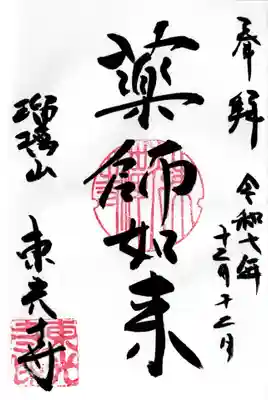 奉拝
令和七年
十二月十二日
薬師如来
瑠璃山
東光寺